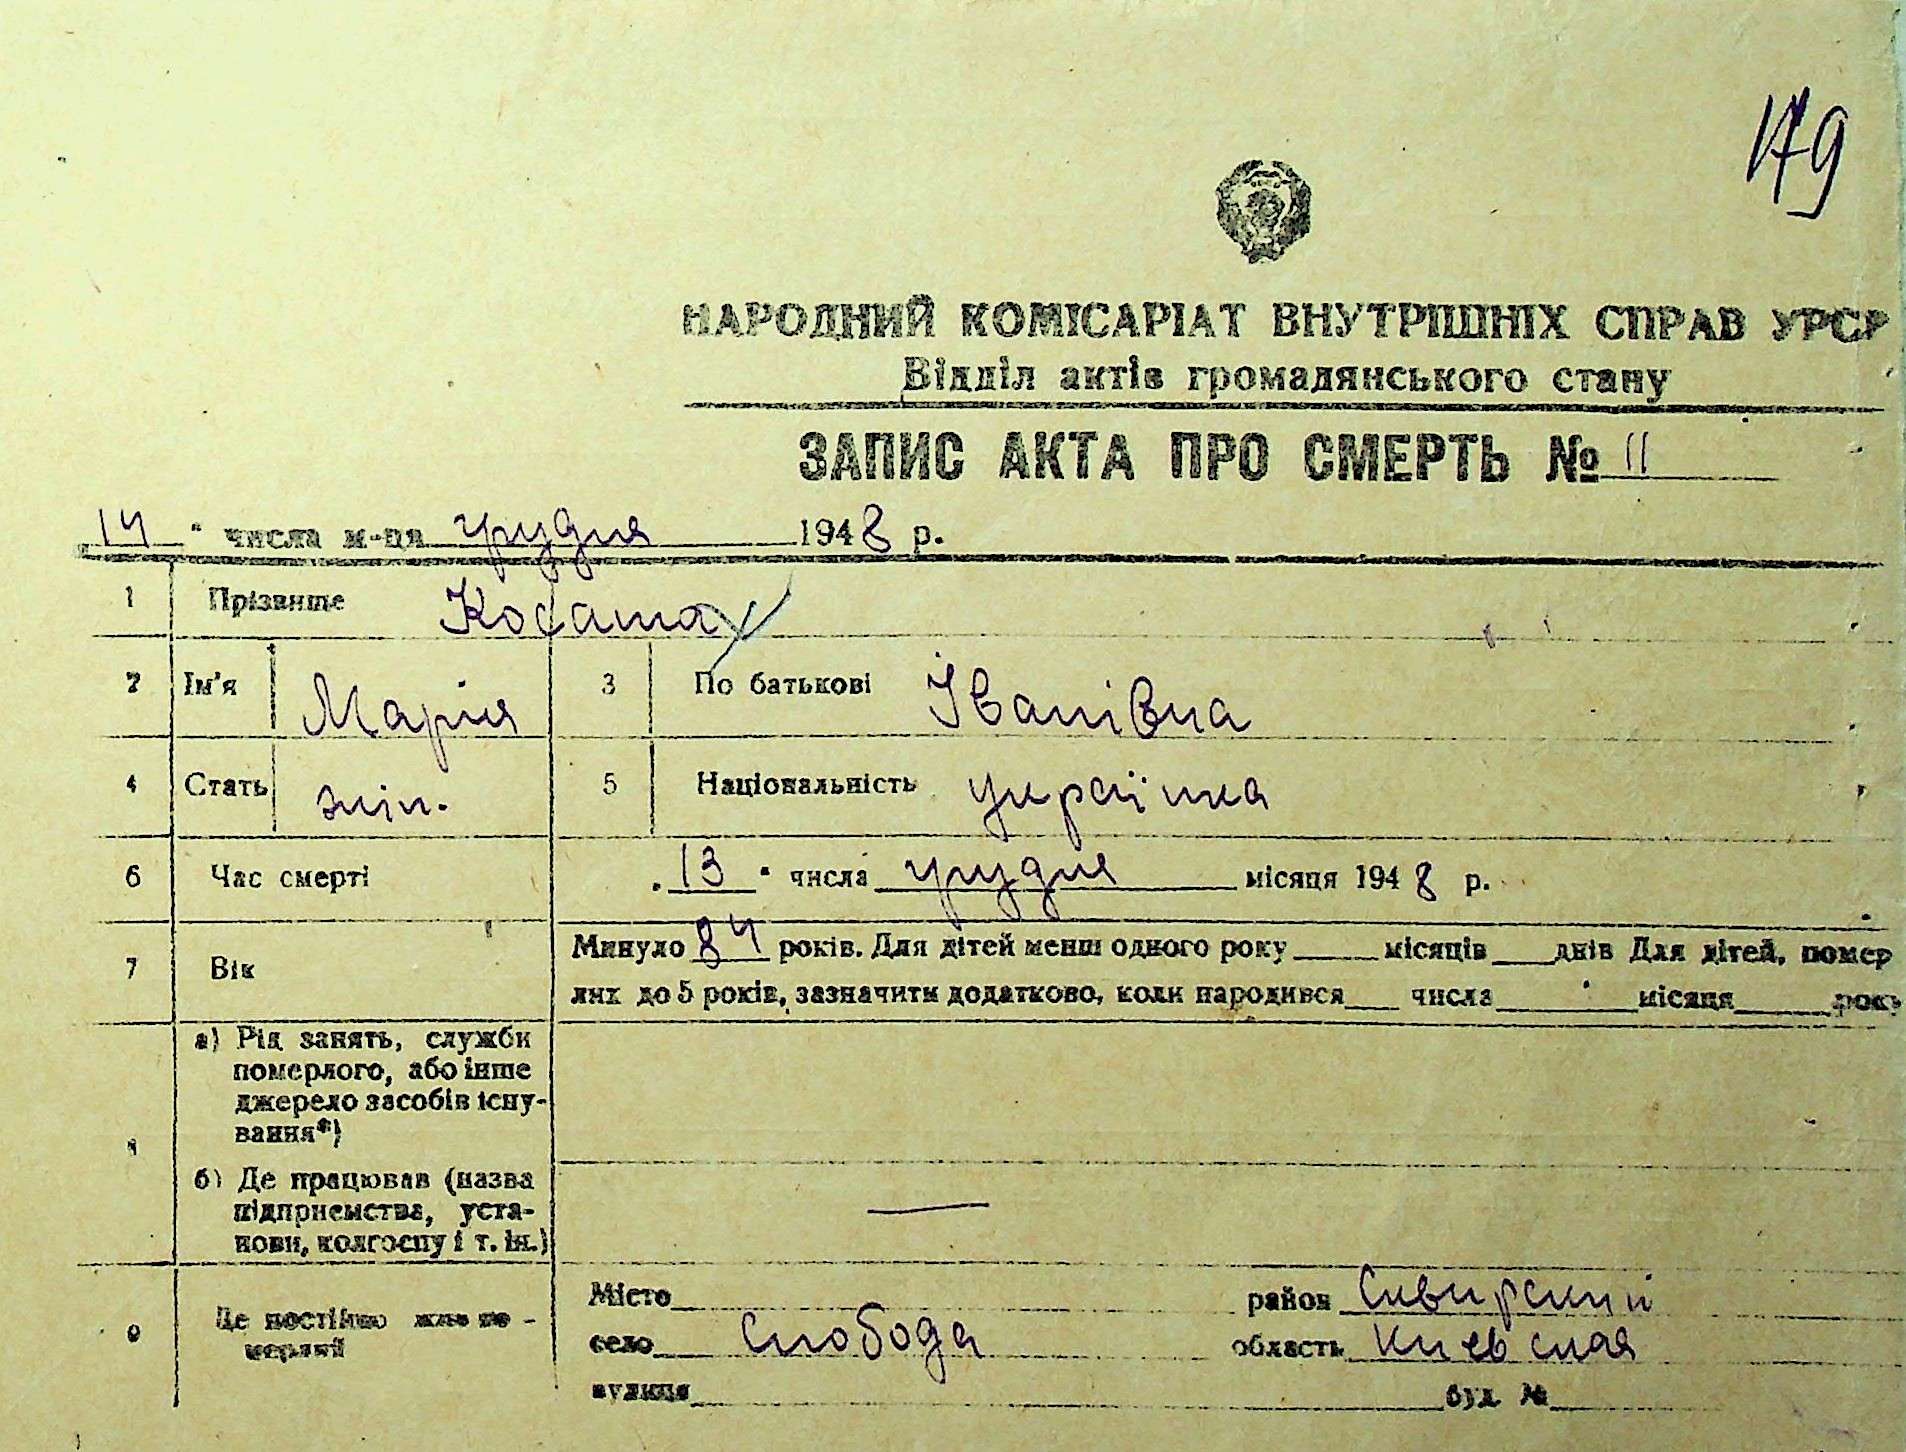 179
НАРОДНИЙ КОМІСАРІАТ ВНУТРІШНІХ СПРАВ УРСР
Відділ актів громадянського стану
ЗАПИС АКТА ПРО СМЕРТЬ № 11
14 " числа м-ця грудня 1948 р.
1 Прізвище Косата
2 Ім'я Марія 3 По батькові Іванівна
4 Стать жін. 5 Національність українка
6 Час смерті „13 " числа грудня місяця 1948 р.
7 Вік Минуло 84 років. Для дітей менш одного року ____ місяців ____ днів Для дітей, помер
лих до 5 років, зазначити додатково, коли народився ____ числа ____ місяця ____ року
8 а) Рід занять, служби
померлого, або інше
джерело засобів існу-
вання*)
б) Де працював (назва
підприємства, уста-
нови, колгоспу і т. ін.) —
9 Де постійно жив по-
мерлий
Місто ____ район Сквирский
село Слобода область Киевская
вулиця ____ буд. № ____